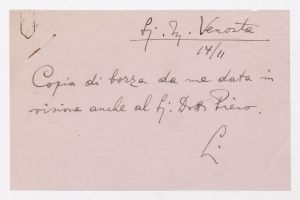 Sig. Ing. Venosta
14/11
Copia di bozza da me data in
visione anche al Sig. Dott. Piero.
L.